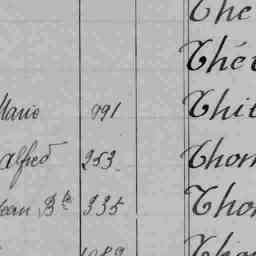 The
Thé
Marie 991 Thit
Alfred 253 Thom
Jean Bte 335 Thom
1089